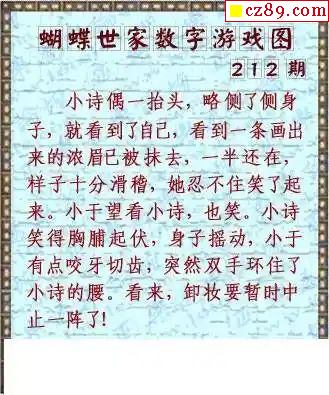 cz89.com
蝴蝶世家数字游戏图
212期
小诗偶一抬头，略侧了侧身
子，就看到了自己，看到一条画出
来的浓眉已被抹去，一半还在，
样子十分滑稽，她忍不住笑了起
来。小于望看小诗，也笑。小诗
笑得胸脯起伏，身子摇动，小于
有点咬牙切齿，突然双手环住了
小诗的腰。看来，卸妆要暂时中
止一阵了!